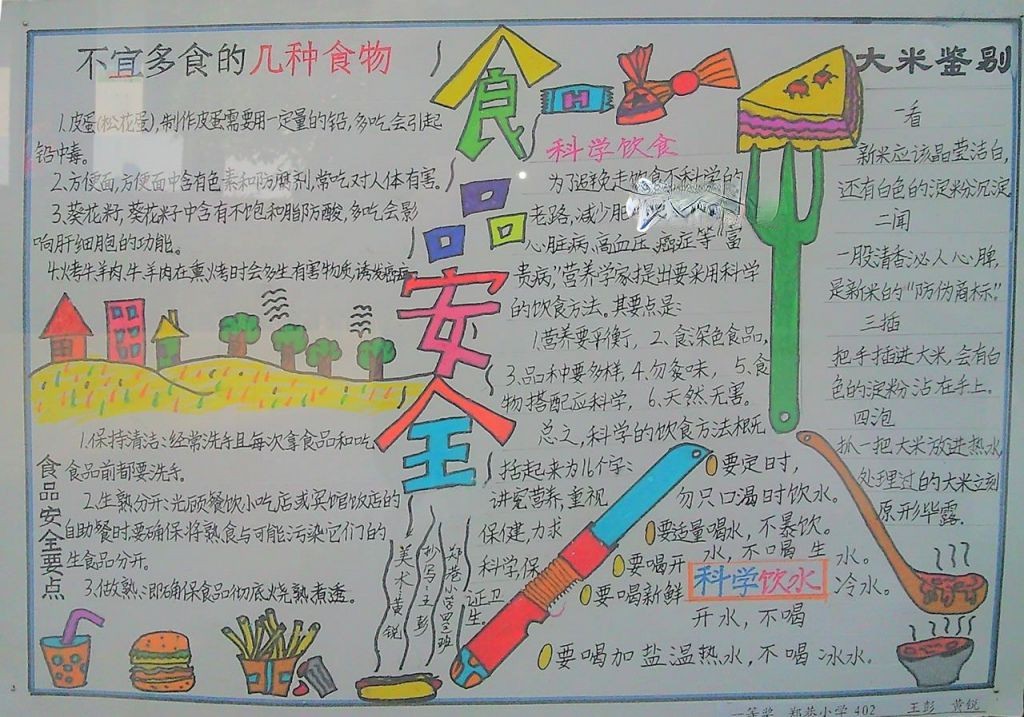 不宜多食的几种食物
1.皮蛋(松花蛋),制作皮蛋需要用一定量的铅,多吃会引起
铅中毒。
2.方便面,方便面中含有色素和防腐剂,常吃对人体有害。
3.葵花籽,葵花籽中含有不饱和脂防酸,多吃会影
响肝细胞的功能。
4.火烤牛羊肉,牛羊肉在熏烤时会多生有害物质,诱发癌症
食品安全
食品安全要点
1.保持清洁:经常洗手且每次拿食品和吃
食品前都要洗手。
2.生熟分开:光顾餐饮小吃店或宾馆饭店的
自助餐时要确保将熟食与可能污染它们的
生食品分开。
3.做熟:即确保食品彻底烧熟煮透。
科学饮食
为了避免走饮食不科学的
老路,减少肥
心脏病,高血压,癌症等“富
贵病”营养学家提出要采用科学
的饮食方法。其要点是:
1.营养要平衡, 2.食深色食品,
3.品种要多样, 4.勿贪味, 5.食
物搭配应科学, 6.天然无害。
总之,科学的饮食方法概无
括起来为几个字:
讲究营养,重视
保健,力求
科学,保
证卫
生。
美术:黄锐
抄写:王彭
郑巷小学四2班
科学饮水
要定时,
勿只口渴时饮水。
要适量喝水,不暴饮。
要喝开水,不喝生水。
要喝新鲜开水,不喝冷水。
要喝加盐温热水,不喝冰水。
大米鉴别
一看
新米应该晶莹洁白,
还有白色的淀粉沉淀
二闻
一股清香沁人心脾,
是新米的“防伪商标”。
三插
把手插进大米,会有白
色的淀粉沾在手上。
四泡
抓一把大米放进热水
处理过的大米立刻
原形毕露.
H
一等奖 郑巷小学402 王彭 黄锐